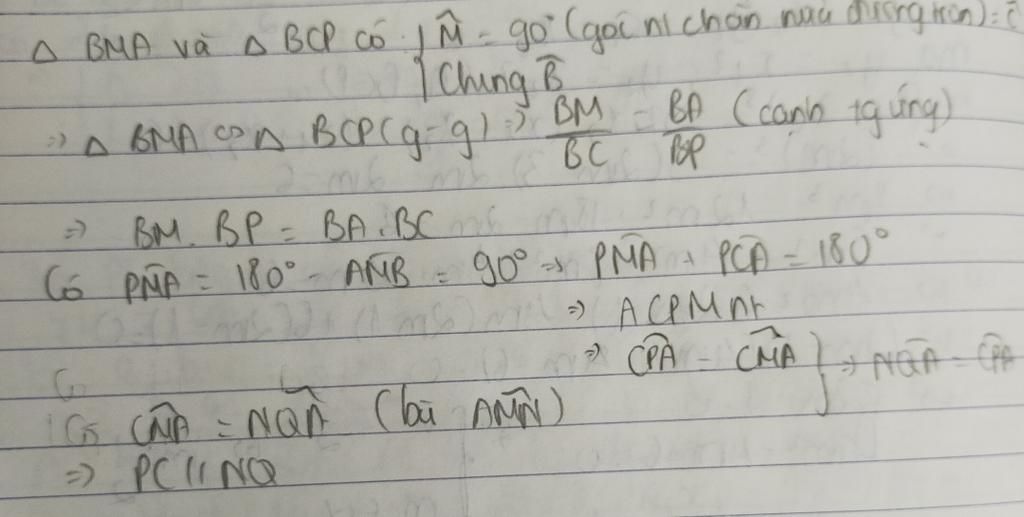 △ BMA và △ BCP có { M̂ = 90° (góc nt chắn nửa đường tròn) = Ĉ
Chung B̂
⇒ △ BMA ∽ △ BCP (g-g) ⇒ BM/BC = BA/BP (cạnh tg ứng)
⇒ BM . BP = BA . BC
Có PM̂A = 180° - AM̂B = 90° ⇒ PM̂A + PĈA = 180°
⇒ ACPM nt
⇒ CP̂A = CM̂A } ⇒ NQ̂A = CP̂A
Có CM̂A = NQ̂A (bù AM̂N)
⇒ PC // NQ